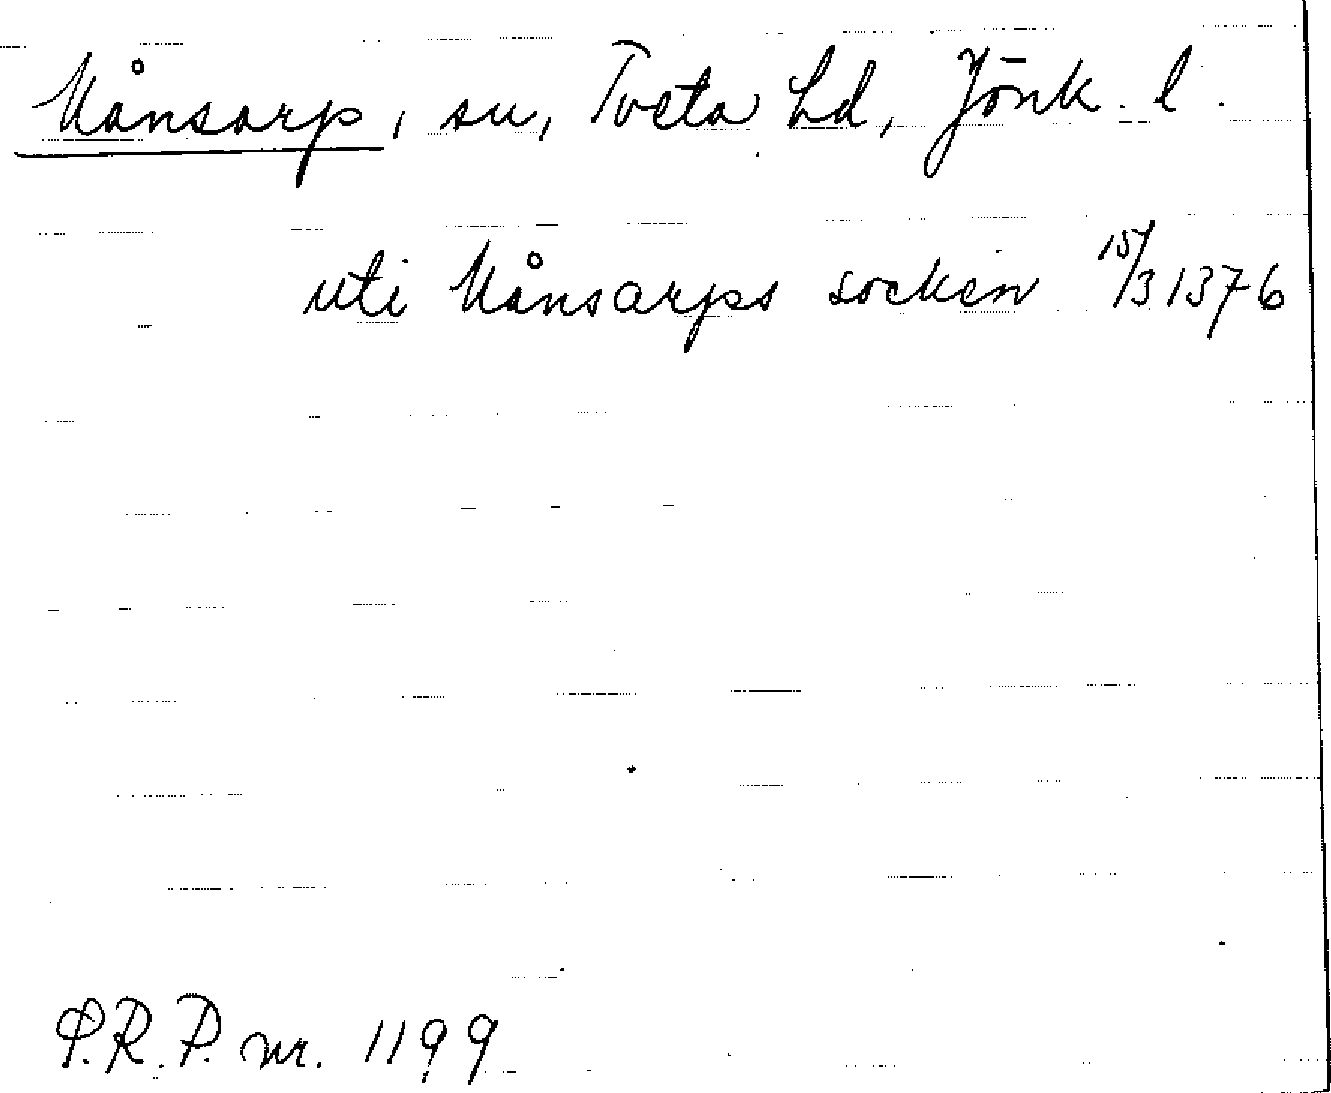 Månsarp, sn, Tveta hd, Jönk. l.
uti Månsarps socken 15/3 1376
P.R.P. nr. 1199